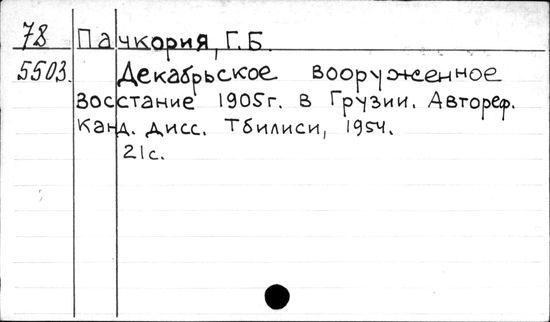 78 Пачкория, Г.Б.
5503. Декабрьское вооруженное
восстание 1905г. в Грузии. Автореф.
канд. дисс. Тбилиси, 1954.
21с.